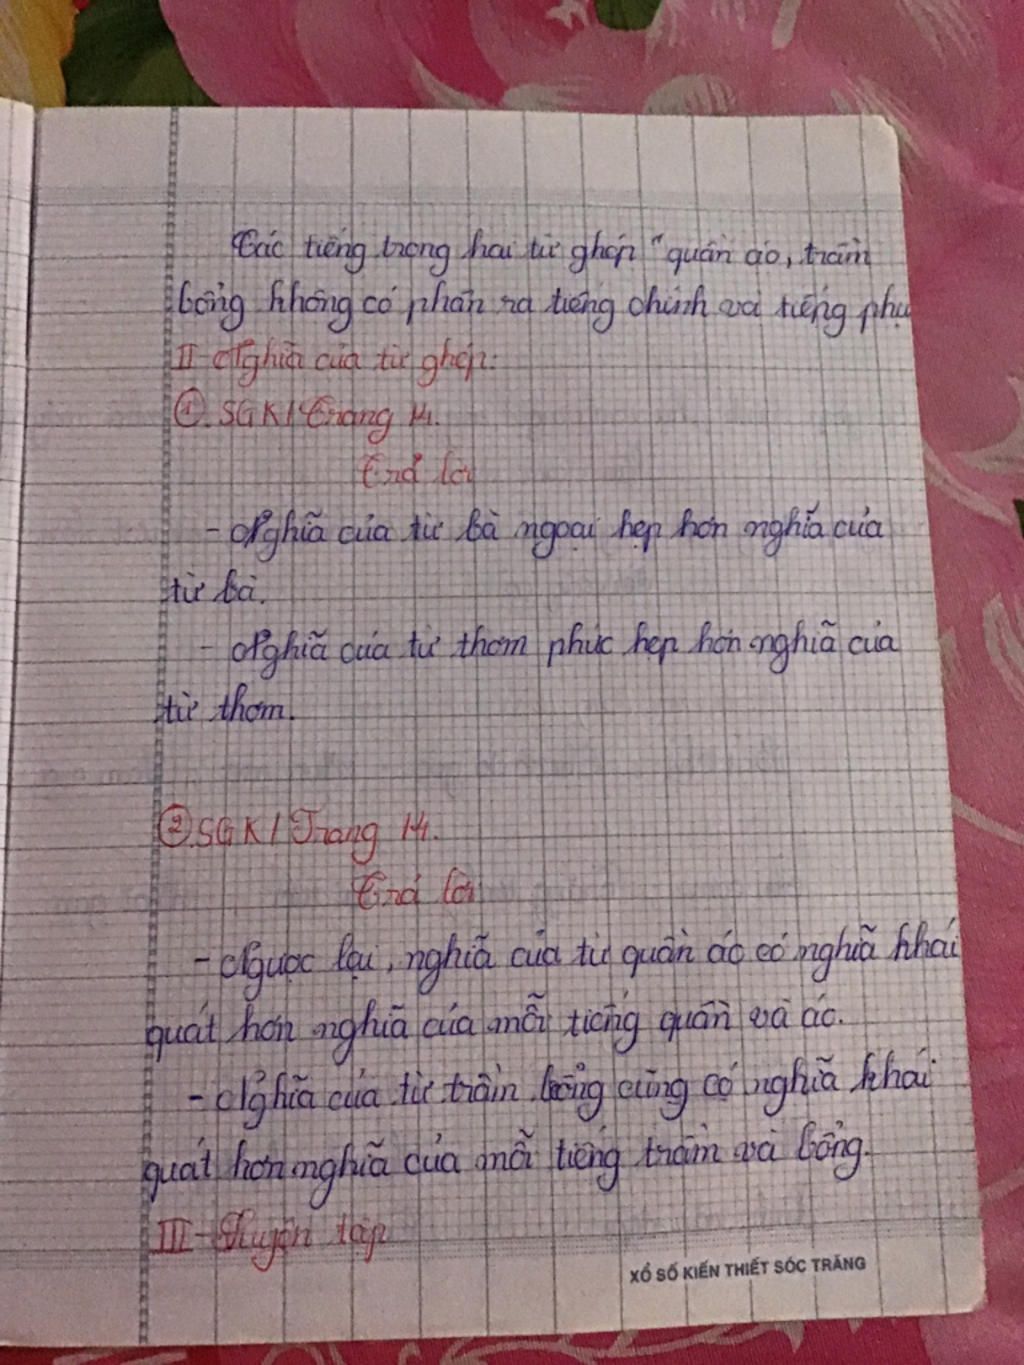 Các tiếng trong hai từ ghép "quần áo, trầm
bổng không có phân ra tiếng chính và tiếng phụ
II - Nghĩa của từ ghép:
①. SGK / Trang 14.
Trả lời
- Nghĩa của từ bà ngoại hẹp hơn nghĩa của
từ bà.
- Nghĩa của từ thơm phức hẹp hơn nghĩa của
từ thơm.
②. SGK / Trang 14.
Trả lời
- Ngược lại, nghĩa của từ quần áo có nghĩa khái
quát hơn nghĩa của mỗi tiếng quần và áo.
- Nghĩa của từ trầm bổng cũng có nghĩa khái
quát hơn nghĩa của mỗi tiếng trầm và bổng.
III - Luyện tập
XỔ SỐ KIẾN THIẾT SÓC TRĂNG